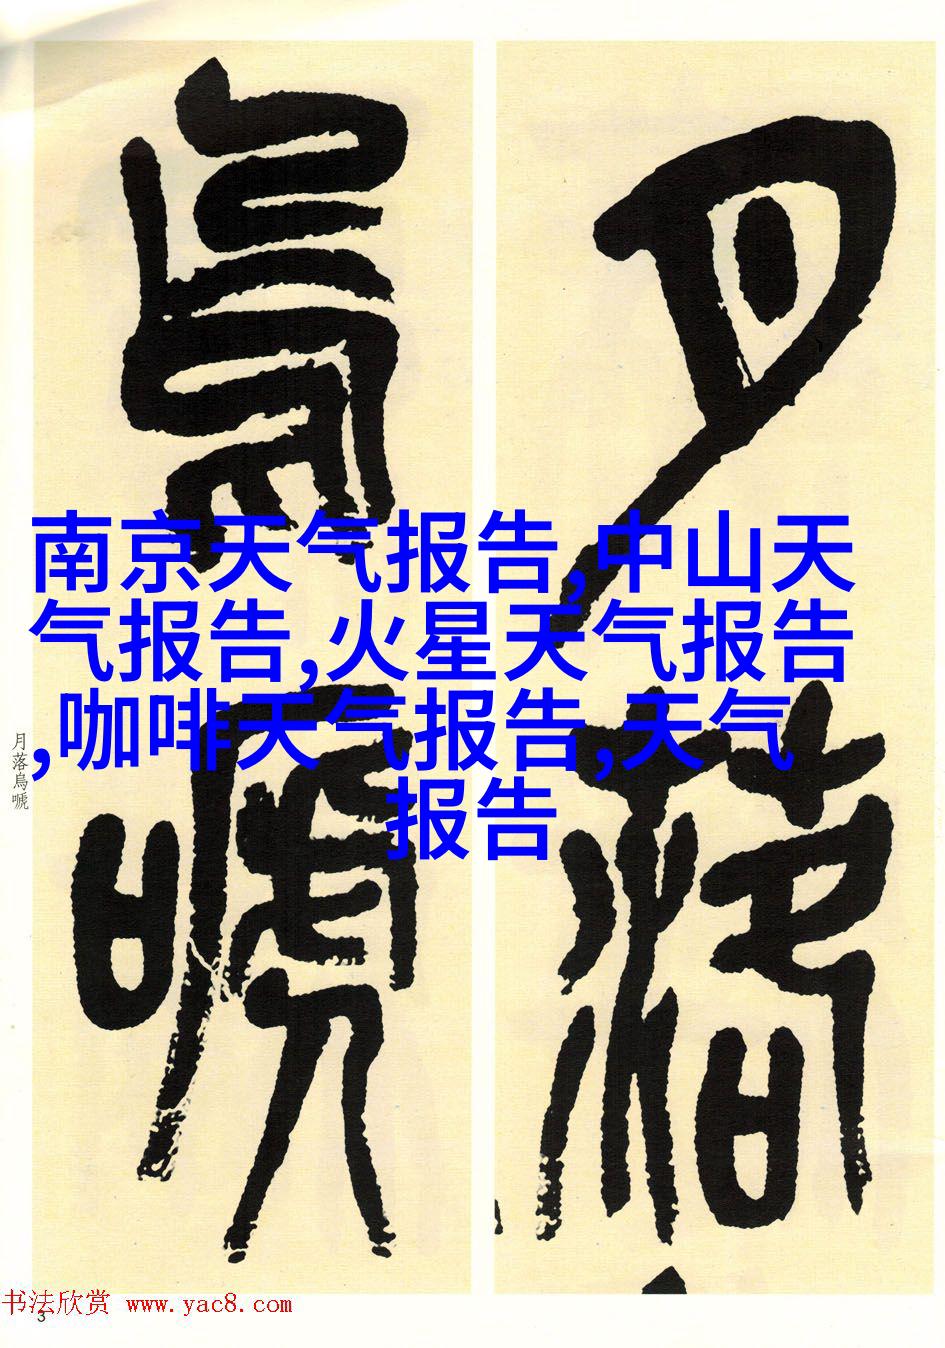 月落
烏嗁
南京天气报告,中山天
气报告,火星天气报告
,咖啡天气报告,天气
报告
月落烏嗁
书法欣赏 www.yac8.com
3